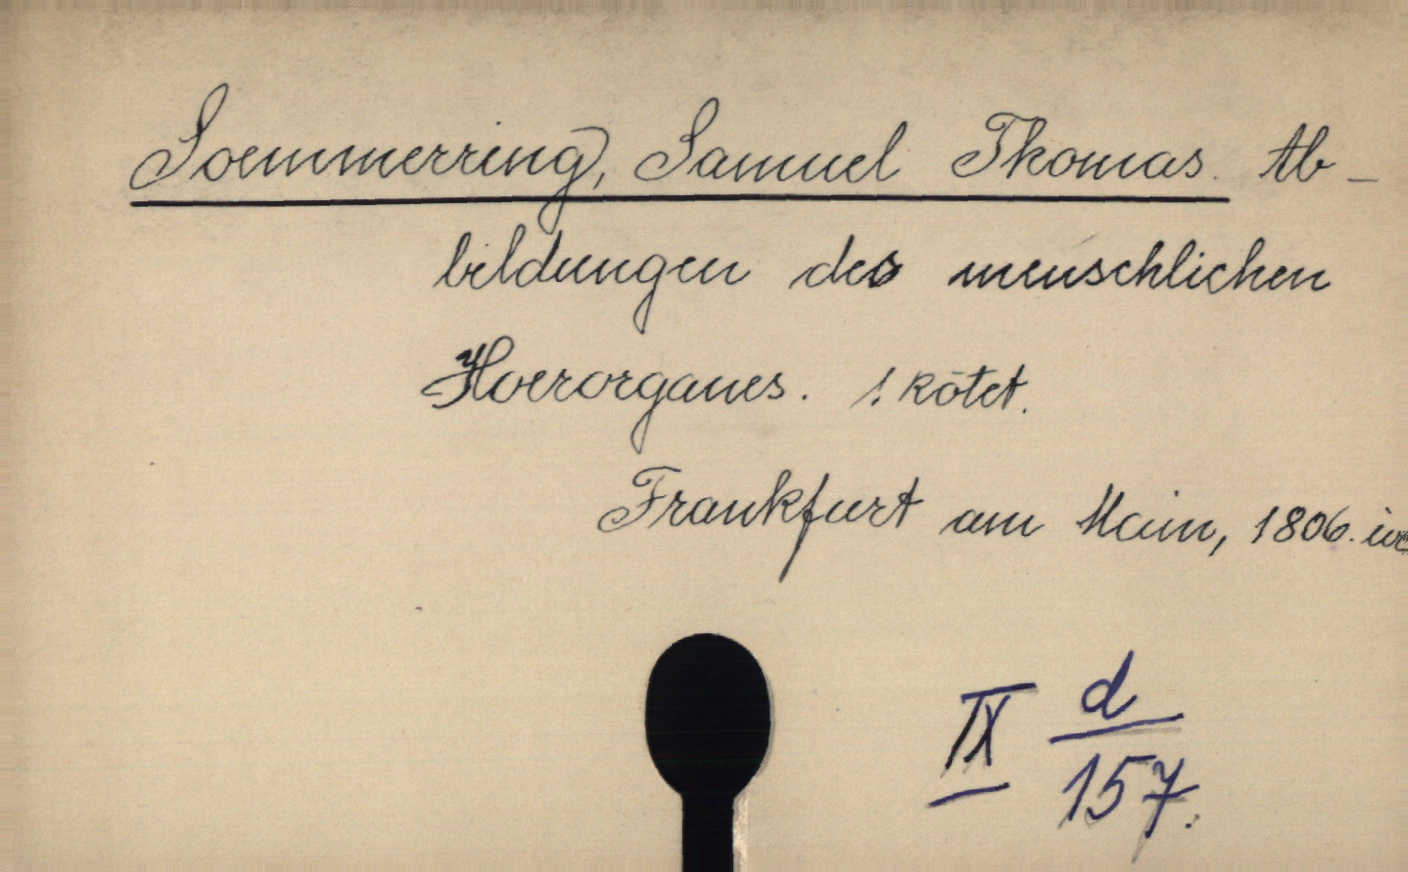 Soemmerring, Samuel Thomas. Ab-
bildungen des menschlichen
Hoerorganes. 1 kötet.
Frankfurt am Main, 1806.
IX d
157.